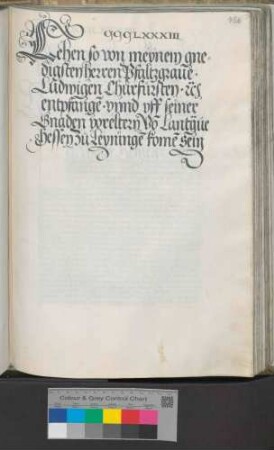 CCCCLXXXIII
456
Lehen so von meynem gne-
digsten herren Pfaltzgraue
Ludwigen Churfursten ꝛc
entpfangē vnnd vff seiner
Gnaden voreltern Vō Lantgraue
Hessen zu Leyningē komē sein
Colour & Grey Control Chart